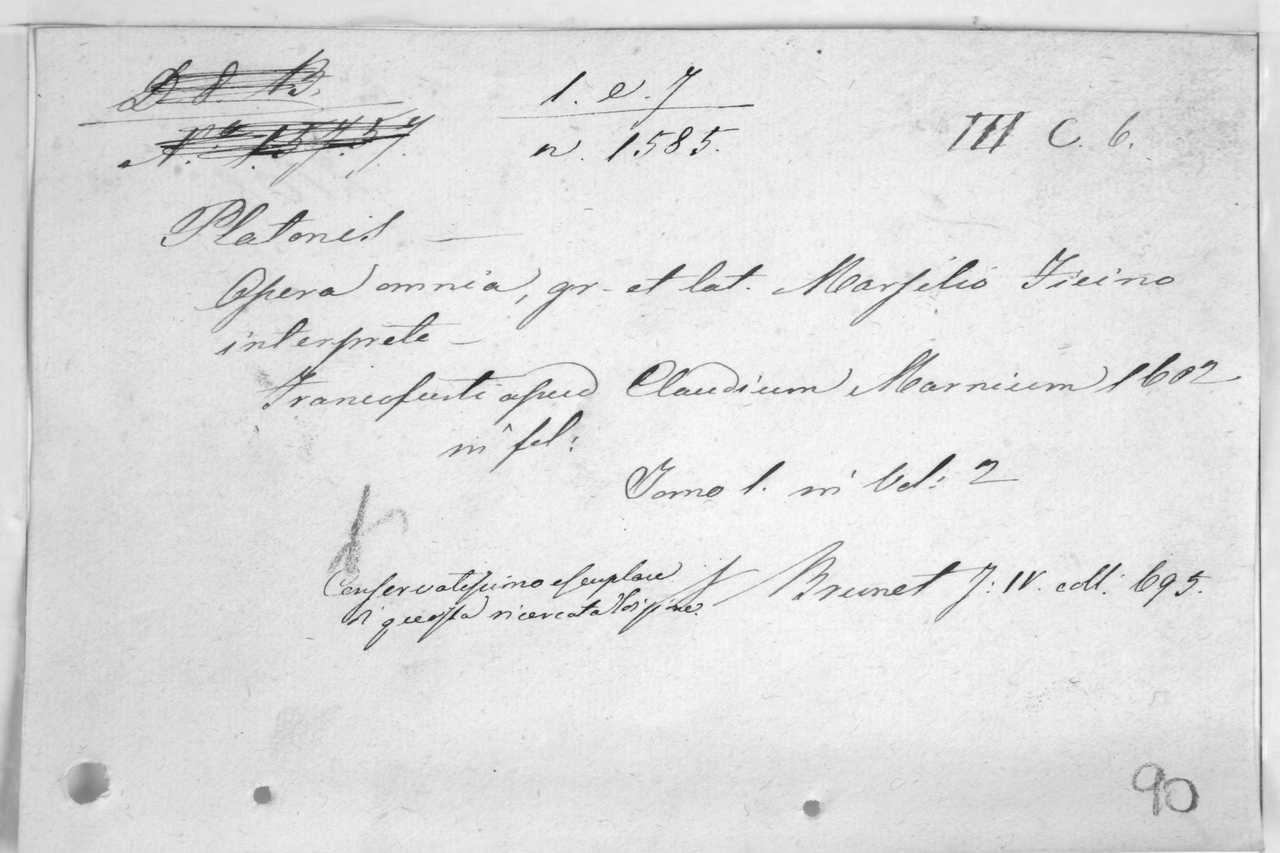 D. d. B.
1. e. 7
III C. 6.
n. 1585.
Platonis —
Opera omnia, gr. et lat. Marsilio Ficino
interprete —
Francofurti apud Claudium Marnium 1602
in fol:
Tomo 1. in Vol: 2
Conservatissimo esemplare
di questa ricercata
Brunet T: IV. coll: 695.
90